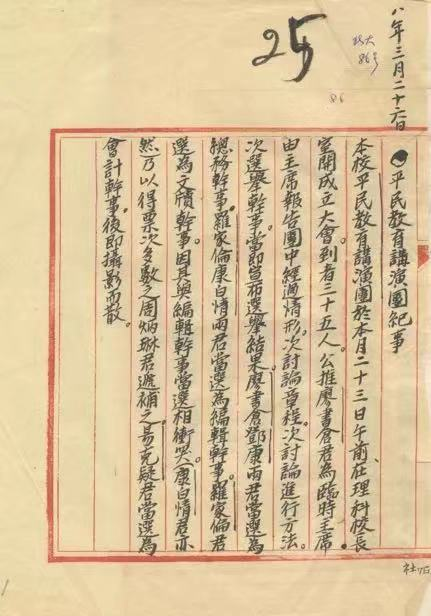 25
八年三月二十六日
平民教育講演團紀事
本校平民教育講演團於本月二十三日午前在理科校長
室開成立大會。到者三十五人。公推廖書倉君為臨時主席。
由主席報告團中經過情形。次討論章程。次討論進行方法。
次選舉幹事。當即宣布選舉結果。廖書倉鄧康兩君當選為
總務幹事。羅家倫康白情兩君當選為編輯幹事。羅家倫君
選為文牘幹事。因其與編輯幹事當選相衝突。康白情君亦
然。乃以得票次多數之周炳琳君遞補之。易克嶷君當選為
會計幹事。後即攝影而散。
86